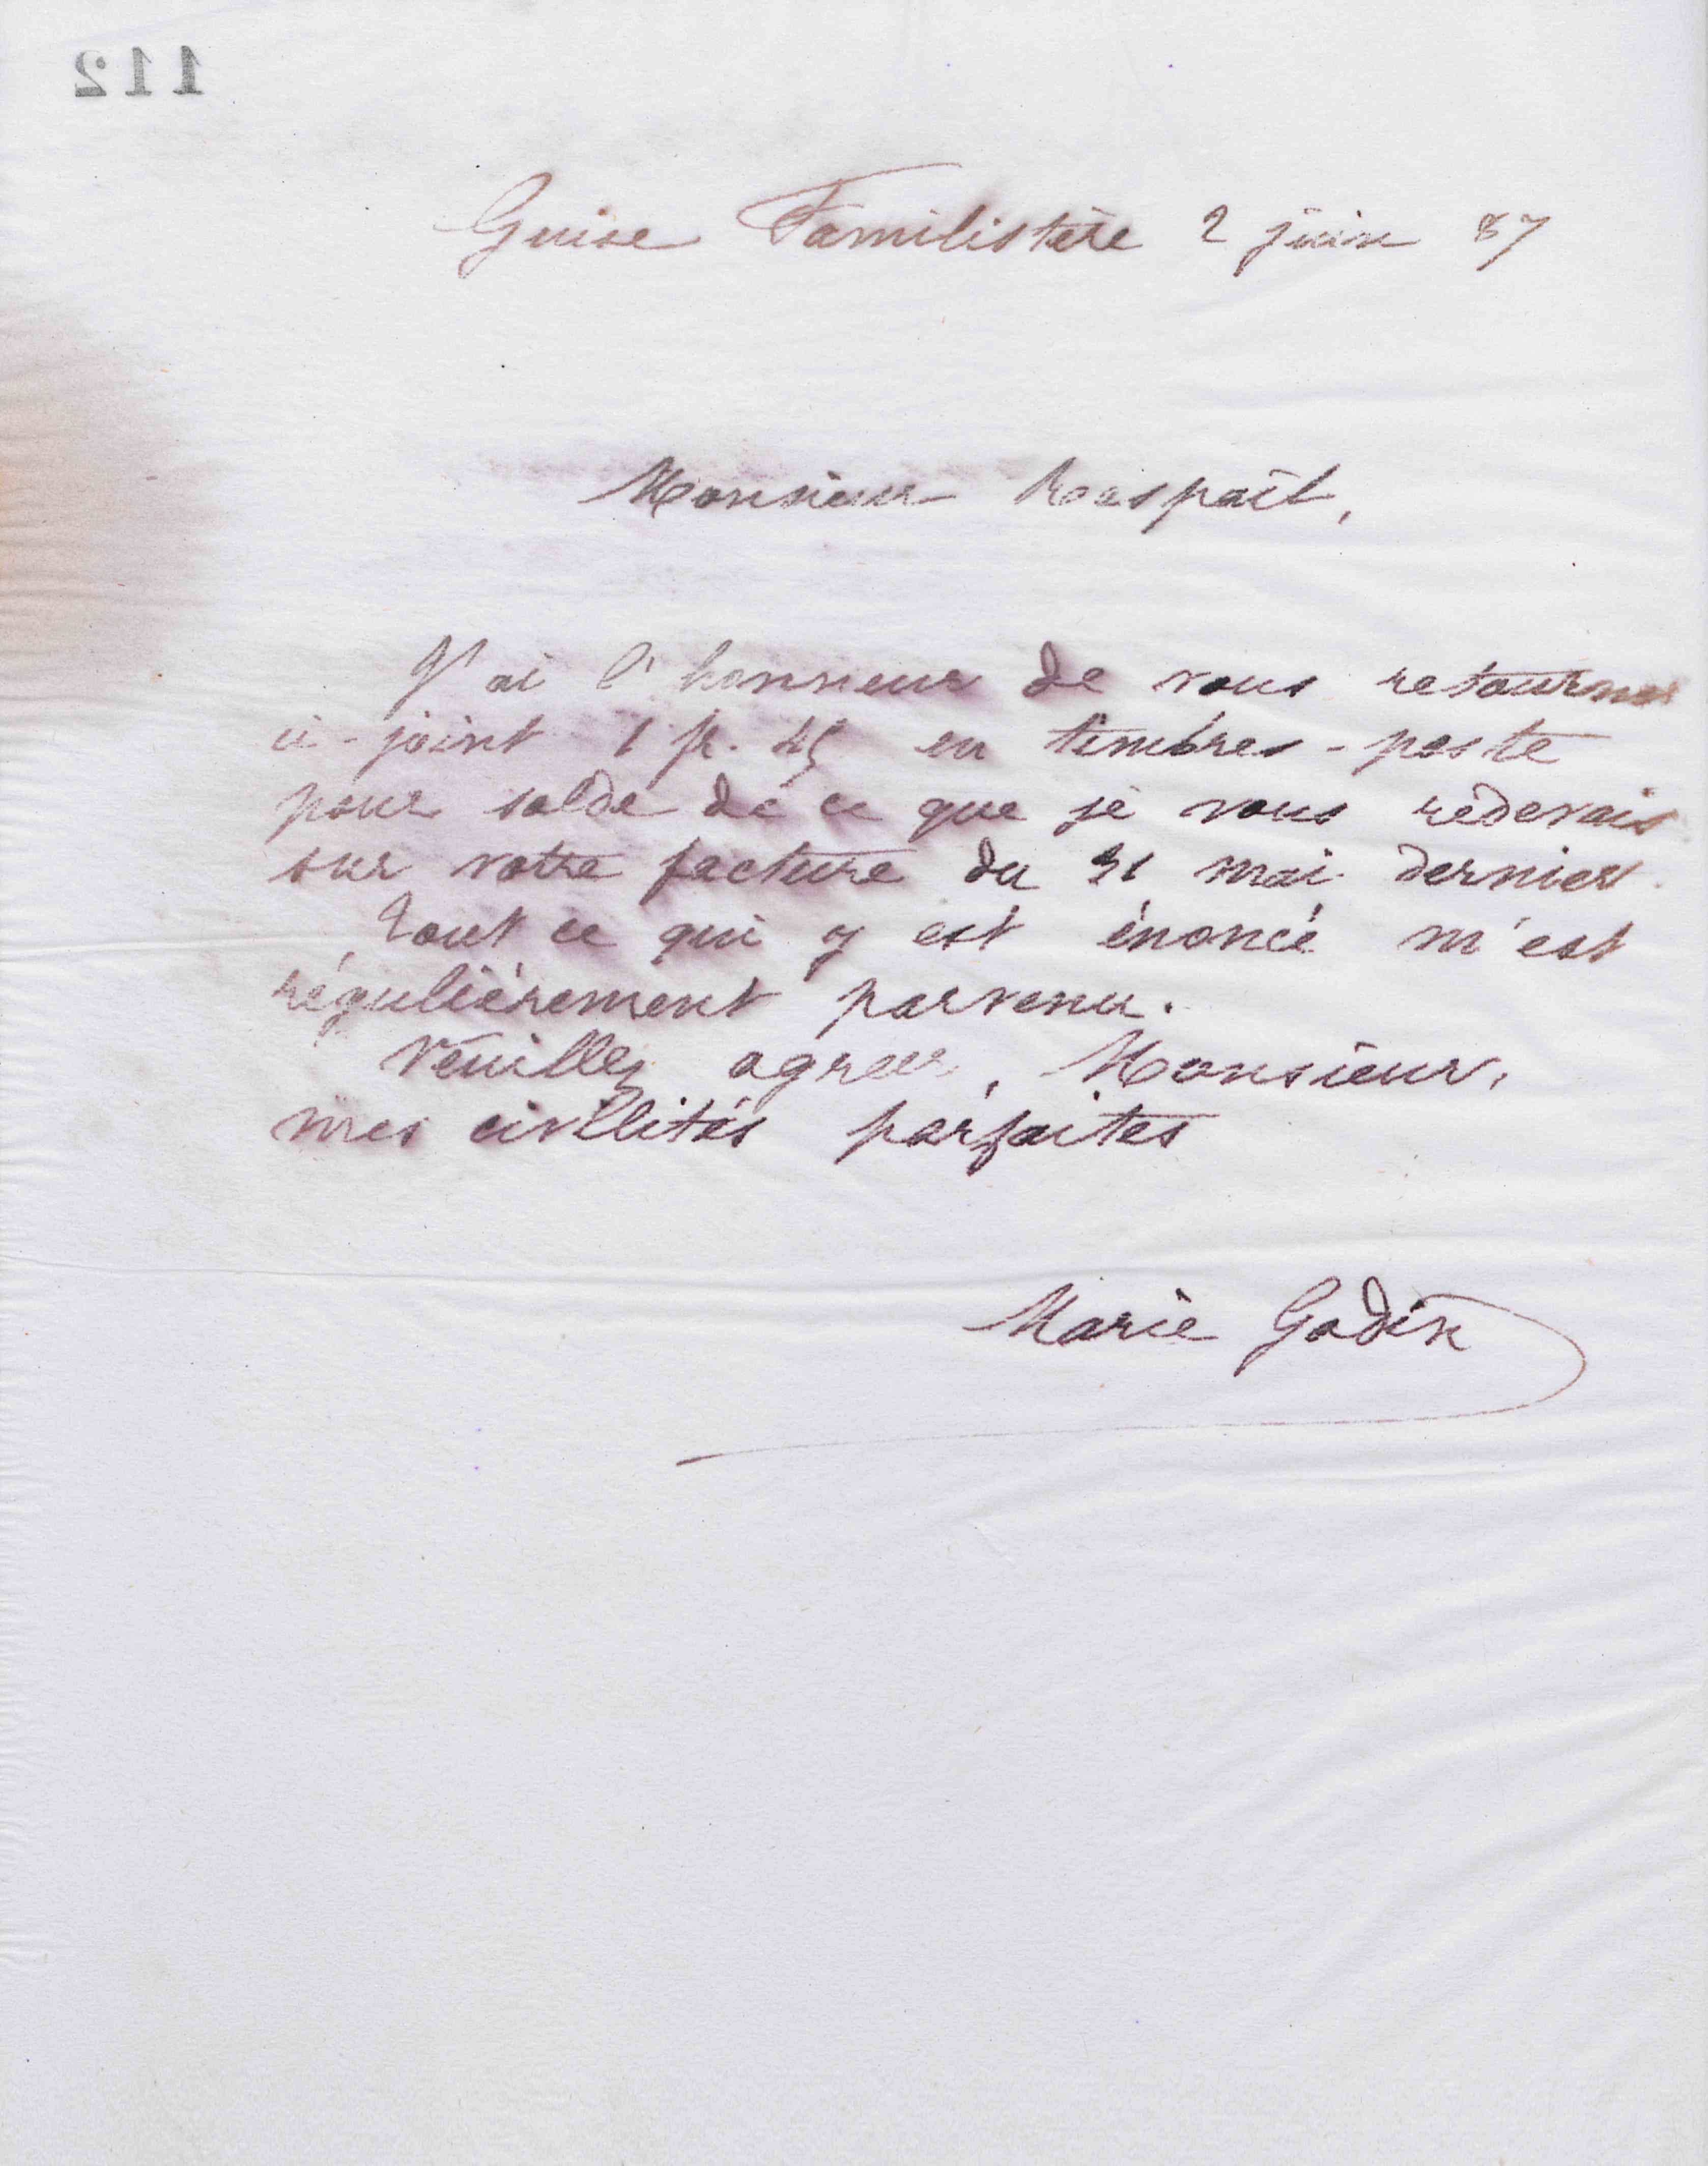 112
Guise Familistère 2 juin 87
Monsieur Raspail,
J'ai l'honneur de vous retourner
ci-joint 1 fr. 45 en timbres-poste
pour solde de ce que je vous redevais
sur votre facture du 31 mai dernier.
Tout ce qui y est énoncé m'est
régulièrement parvenu.
Veuillez agréer, Monsieur,
mes civilités parfaites
Marie Godin